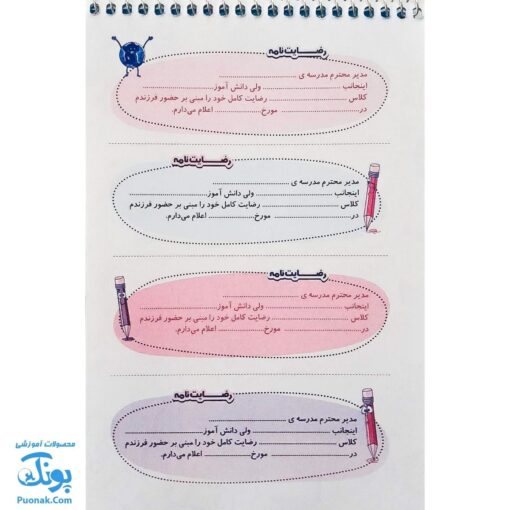 رضایت‌نامه
مدیر محترم مدرسه ی ............................
اینجانب ............................ ولی دانش آموز............................
کلاس ............................ رضایت کامل خود را مبنی بر حضور فرزندم
در............................ مورخ............................ اعلام می‌دارم.
رضایت‌نامه
مدیر محترم مدرسه ی ............................
اینجانب ............................ ولی دانش آموز............................
کلاس ............................ رضایت کامل خود را مبنی بر حضور فرزندم
در............................ مورخ............................ اعلام می‌دارم.
رضایت‌نامه
مدیر محترم مدرسه ی ............................
اینجانب ............................ ولی دانش آموز............................
کلاس ............................ رضایت کامل خود را مبنی بر حضور فرزندم
در............................ مورخ............................ اعلام می‌دارم.
رضایت‌نامه
مدیر محترم مدرسه ی ............................
اینجانب ............................ ولی دانش آموز............................
کلاس ............................ رضایت کامل خود را مبنی بر حضور فرزندم
در............................ مورخ............................ اعلام می‌دارم.
محصولات آموزشی
پونک
Puonak.Com